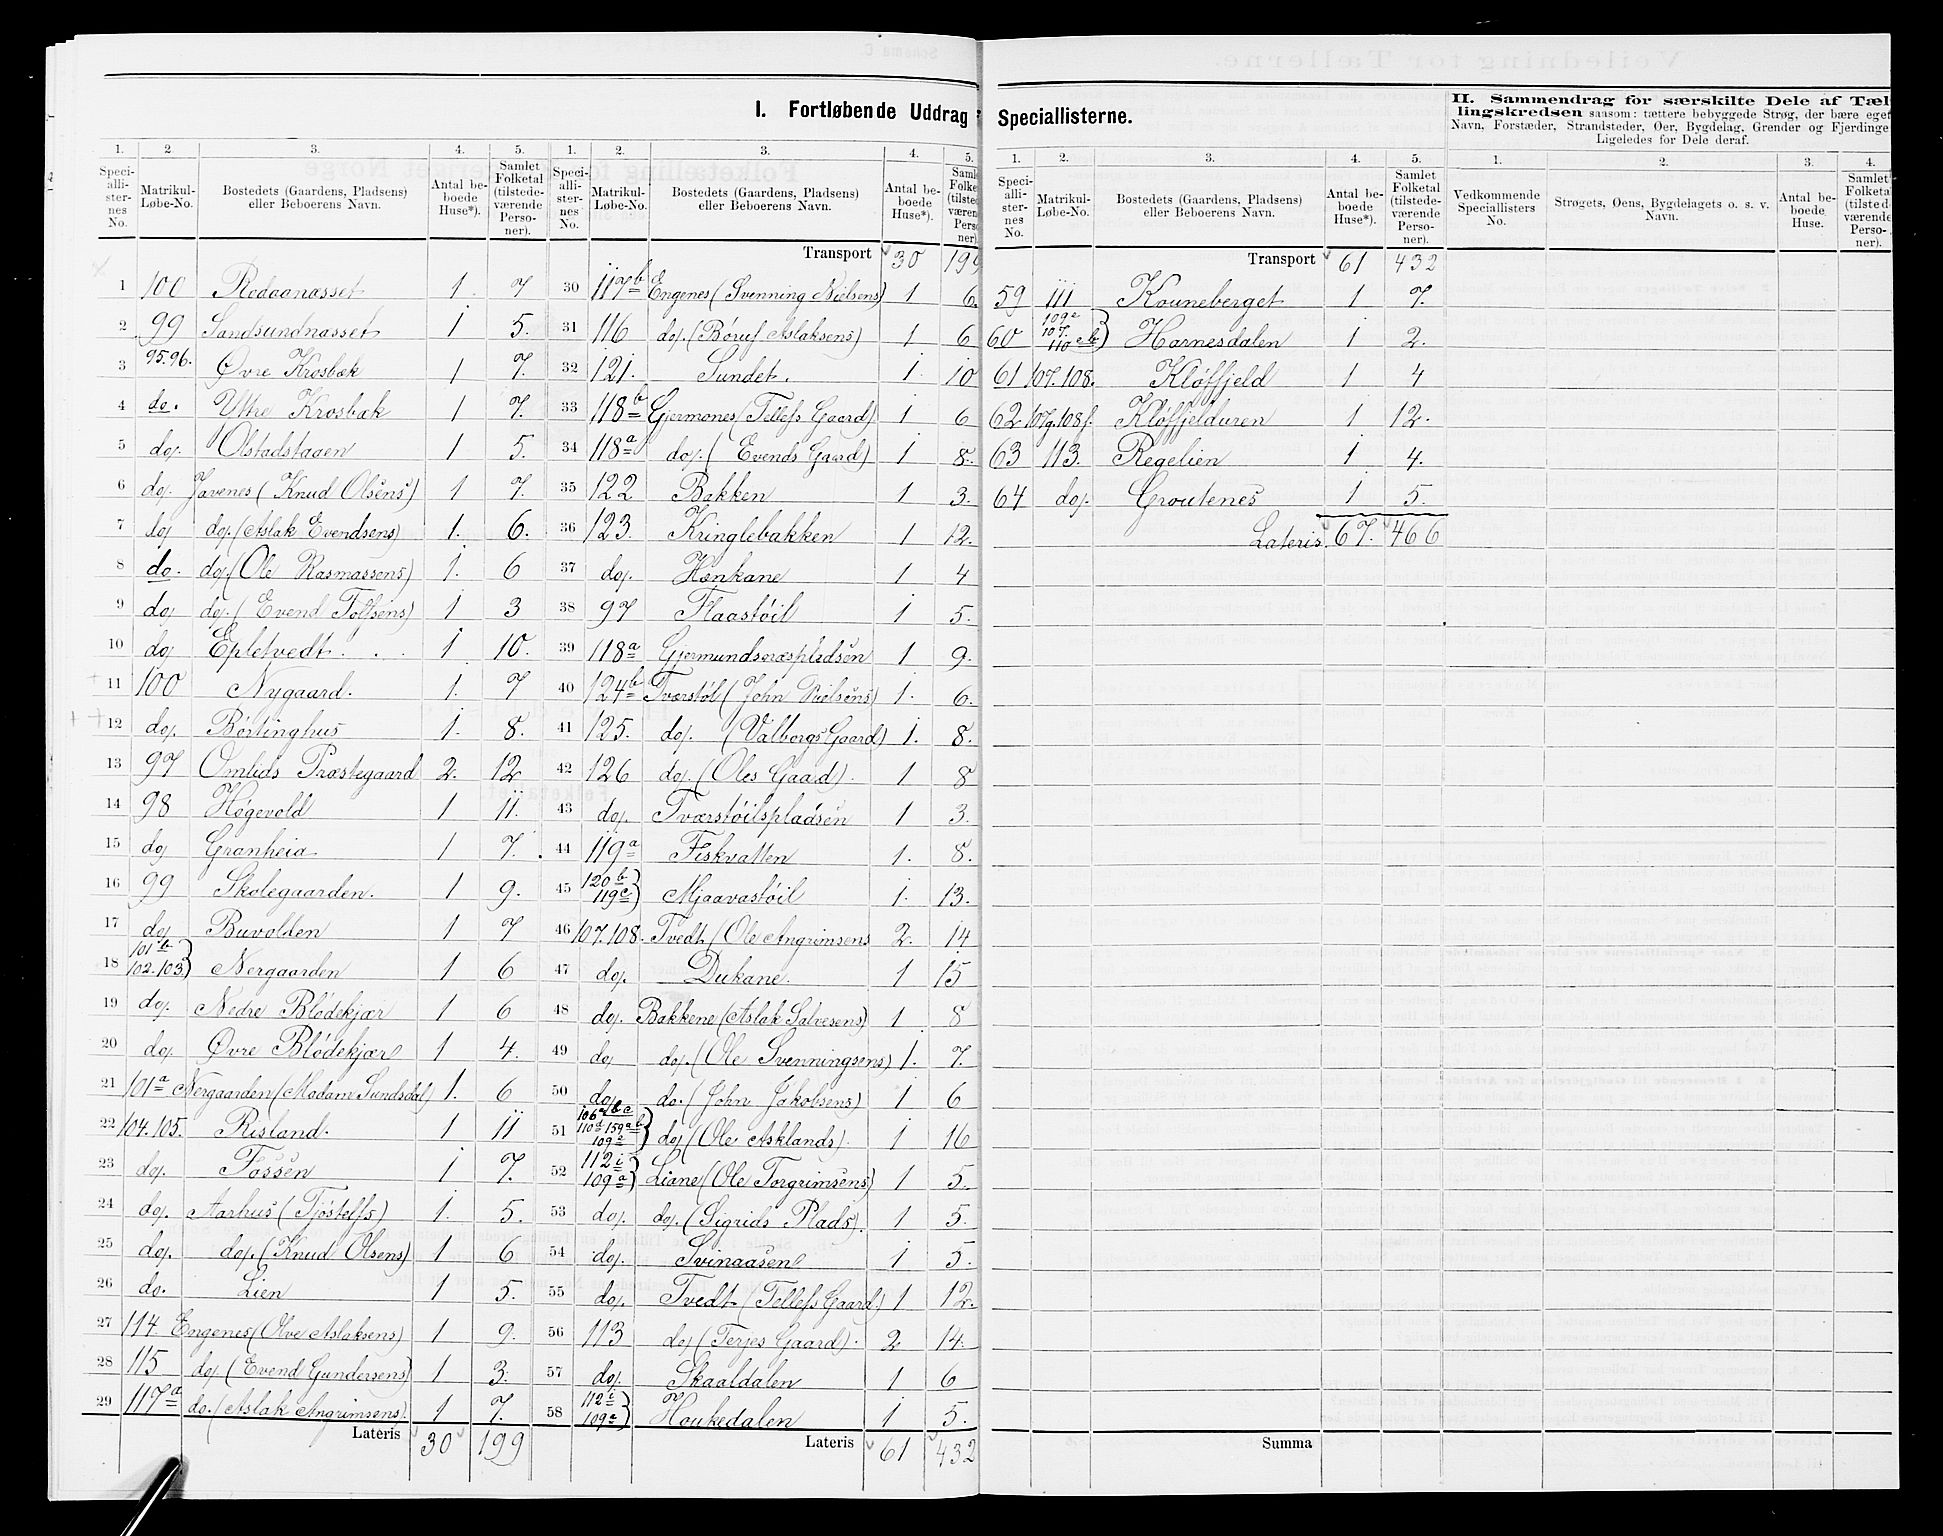 I. Fortløbende Uddrag
Speciallisterne.
II. Sammendrag for særskilte Dele af Tæl-
lingskredsen saasom: tættere bebyggede Strøg, der bære eget
Navn, Forstæder, Strandsteder, Øer, Bygdelag, Grender og Fjerdinge
Ligeledes for Dele deraf.
1. 2. 3. 4. 5.
Speciallisternes No. Matrikul-Løbe-No. Bostedets (Gaardens, Pladsens) eller Beboerens Navn. Antal beboede Huse*). Samlet Folketal (tilstedeværende Personer).
1 100 Redaanasset 1 7
2 99 Sandsundnasset 1 5.
3 95.96. Øvre Krosbæk 1 7.
4 do. Yttre Krosbæk 1 7.
5 do. Olstadstaaen 1 5.
6 do. Javenes (Knud Olsens) 1 7.
7 do do. (Aslak Evendsens) 1. 6.
8 do. do. (Ole Rasmassens) 1. 6
9 do do. (Evend Tolfsens) 1 3
10 do Epletvedt. 1 10.
11 100 Nygaard. 1. 7
12 do. Børtinghus 1. 8.
13 97 Omlids Præstegaard 2. 12
14 98 Høgevold 1 11.
15 do Granheia 1 7.
16 99 Skolegaarden. 1 9.
17 do Buvolden 1 7
18 101b 102.103 Nergaarden 1 6
19 do. Nedre Blødekjær 1 6
20 do. Øvre Blødekjær 1 4.
21 101a Nergaarden (Madam Sundsdal) 1. 6
22 104.105. Risland. 1 11
23 do. Fossen 1 7.
24 do. Aarhus (Tjøstelfs) 1. 5.
25 do. do. (Knud Olsens) 1 6
26 do. Lien 1 5.
27 114. Engenes (Olve Aslaksens) 1 9.
28 115 do. (Evend Gundersens) 1 3.
29 117a do. (Aslak Angrimsens). 1 7.
Lateris 30 199
1. 2. 3. 4. 5.
Speciallisternes No. Matrikul-Løbe-No. Bostedets (Gaardens, Pladsens) eller Beboerens Navn. Antal beboede Huse*).
Transport 30 199
30 117b Engenes (Svenning Nielsens) 1 6.
31 116 do. (Børuf Aslaksens) 1 6
32 121. Sundet. 1. 10
33 118b Gjermones (Tellefs Gaard) 1 6
34 118a do. (Evends Gaard) 1 8.
35 122 Bakken 1 3.
36 123. Kringlebakken 1 12.
37 do. Hænkane 1 4
38 97 Flaastøil 1 5.
39 118a Gjermundsnæspladsen 1 9.
40 124b Tværstøl (John Nielsens) 1. 6.
41 125. do. (Valborgs Gaard) 1. 8.
42 126 do. (Oles Gaard). 1 8
43 do. Tværstøilspladsen 1 3.
44 119a Fiskvatten 1. 8.
45 120b 119c Mjaavastøil 1. 13.
46 107.108. Tvedt (Ole Angrimsens 2. 14
47 do. Dukane. 1 15
48 do. Bakkene (Aslak Salvesens) 1 8
49 do do. (Ole Svenningsens) 1. 7.
50 do. do. (John Jakobsens) 1 6
51 do (Ole Asklands). 1 16
52 112i 109a Liane (Ole Torgrimsens) 1 5.
53 do. do. (Sigrids Plads). 1 5.
54 do. Svinaasen 1 5.
55 do. Tvedt (Tellefs Gaard) 1 12.
56 113 do (Terjes Gaard). 2 14.
57 do. Skaaldalen 1 6
58 112i 109a Houkedalen 1 5.
Lateris 61 432
1. 2. 3. 4. 5.
Speciallisternes No. Matrikul-Løbe-No. Bostedets (Gaardens, Pladsens) eller Beboerens Navn. Antal beboede Huse*). Samlet Folketal (tilstedeværende Personer).
Transport 61 432
59 111 Kouneberget 1 7.
60 Hornesdalen 1 2.
61 107.108. Kløffjeld 1 4
62 Kløffjelduren 1 12.
63 113. Regelien 1 4.
64 do. Groutenes 1 5.
Lateris. 67. 466
Summa
1. 2. 3. 4.
Vedkommende Speciallisters No. Strøgets, Øens, Bygdelagets o. s. v. Navn. Antal beboede Huse. Samlet Folketal (tilstedeværende Personer).